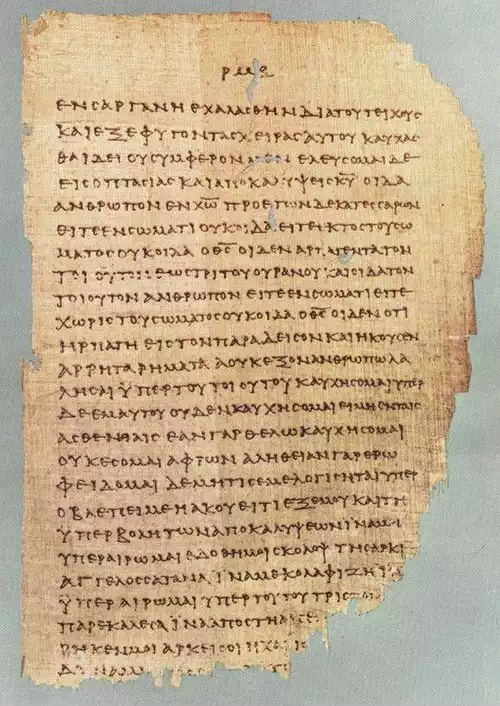 ΕΝϹΑΡΓΑΝΗΕΧΑΛΑϹΘΗΝΔΙΑΤΟΥΤΕΙΧΟΥϹ
ΚΑΙΕΞΕΦΥΓΟΝΤΑϹΧΕΙΡΑϹΑΥΤΟΥΚΑΥΧΑϹ
ΘΑΙΔΕΙΟΥϹΥΜΦΕΡΟΝ ΕΛΕΥϹΟΜΑΙΔΕ
ΕΙϹΟΠΤΑϹΙΑϹΚΑΙΑΠΟΚΑΛΥΨΕΙϹΚ̅Υ̅ΟΙΔΑ
ΑΝΘΡΩΠΟΝΕΝΧ̅Ω̅ΠΡΟΕΤΩΝΔΕΚΑΤΕϹϹΑΡΩΝ
ΕΙΤΕΕΝϹΩΜΑΤΙΟΥΚΟΙΔΑΕΙΤΕΕΚΤΟϹΤΟΥϹΩ
ΜΑΤΟϹΟΥΚΟΙΔΑΟΘ̅Ϲ̅ΟΙΔΕΝΑΡΠΑΓΕΝΤΑΤΟΝ
ΤΟΙΟΥΤΟΝΕΩϹΤΡΙΤΟΥΟΥΡΑΝΟΥΚΑΙΟΙΔΑΤΟΝ
ΤΟΙΟΥΤΟΝΑΝΘΡΩΠΟΝΕΙΤΕΕΝϹΩΜΑΤΙΕΙΤΕ
ΧΩΡΙϹΤΟΥϹΩΜΑΤΟϹΟΥΚΟΙΔΑΟΘ̅Ϲ̅ΟΙΔΕΝΟΤΙ
ΗΡΠΑΓΗΕΙϹΤΟΝΠΑΡΑΔΕΙϹΟΝΚΑΙΗΚΟΥϹΕΝ
ΑΡΡΗΤΑΡΗΜΑΤΑΑΟΥΚΕΞΟΝΑΝΘΡΩΠΩΛΑ
ΛΗϹΑΙΫΠΕΡΤΟΥΤΟΙΟΥΤΟΥΚΑΥΧΗϹΟΜΑΙΥΠΕΡ
ΔΕΕΜΑΥΤΟΥΟΥΔΕΝΚΑΥΧΗϹΟΜΑΙΕΙΜΗΕΝΤΑΙϹ
ΑϹΘΕΝΕΙΑΙϹΕΑΝΓΑΡΘΕΛΩΚΑΥΧΗϹΟΜΑΙ
ΟΥΚΕϹΟΜΑΙΑΦΡΩΝΑΛΗΘΕΙΑΝΓΑΡΕΡΩ
ΦΕΙΔΟΜΑΙΔΕΜΗΤΙϹΕΜΕΛΟΓΙϹΗΤΑΙΥΠΕΡ
ΟΒΛΕΠΕΙΜΕΗΑΚΟΥΕΙΤΙΕΞΕΜΟΥΚΑΙΤΗ
ΫΠΕΡΒΟΛΗΤΩΝΑΠΟΚΑΛΥΨΕΩΝΪΝΑΜΗ
ΥΠΕΡΑΙΡΩΜΑΙΕΔΟΘΗΜΟΙϹΚΟΛΟΨΤΗϹΑΡΚΙ
ΑΓΓΕΛΟϹϹΑΤΑΝΑΪΝΑΜΕΚΟΛΑΦΙΖΗΪΝΑ
ΫΠΕΡΑΙΡΩΜΑΙΥΠΕΡΤΟΥΤΟΥΤΡΙϹ
ΠΑΡΕΚΑΛΕϹΑΪΝΑΑΠΟϹΤΗ
ΡΗΚΕΝΜΟΙΑΡΚΕΙϹΟΙΗΧΑΡΙϹ